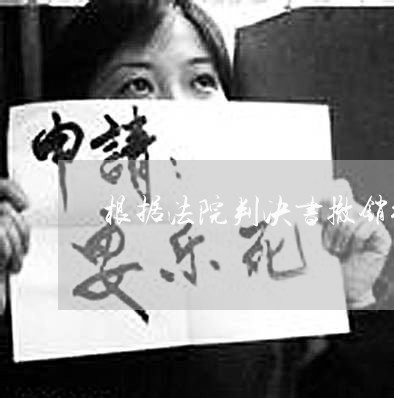 申請：
根据法院判决书撤销
安乐死